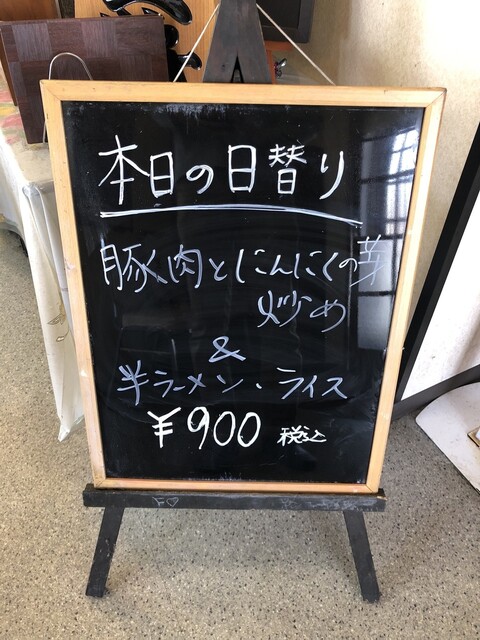 本日の日替り
豚肉とにんにくの芽
炒め
&
半ラーメン、ライス
¥900 税込